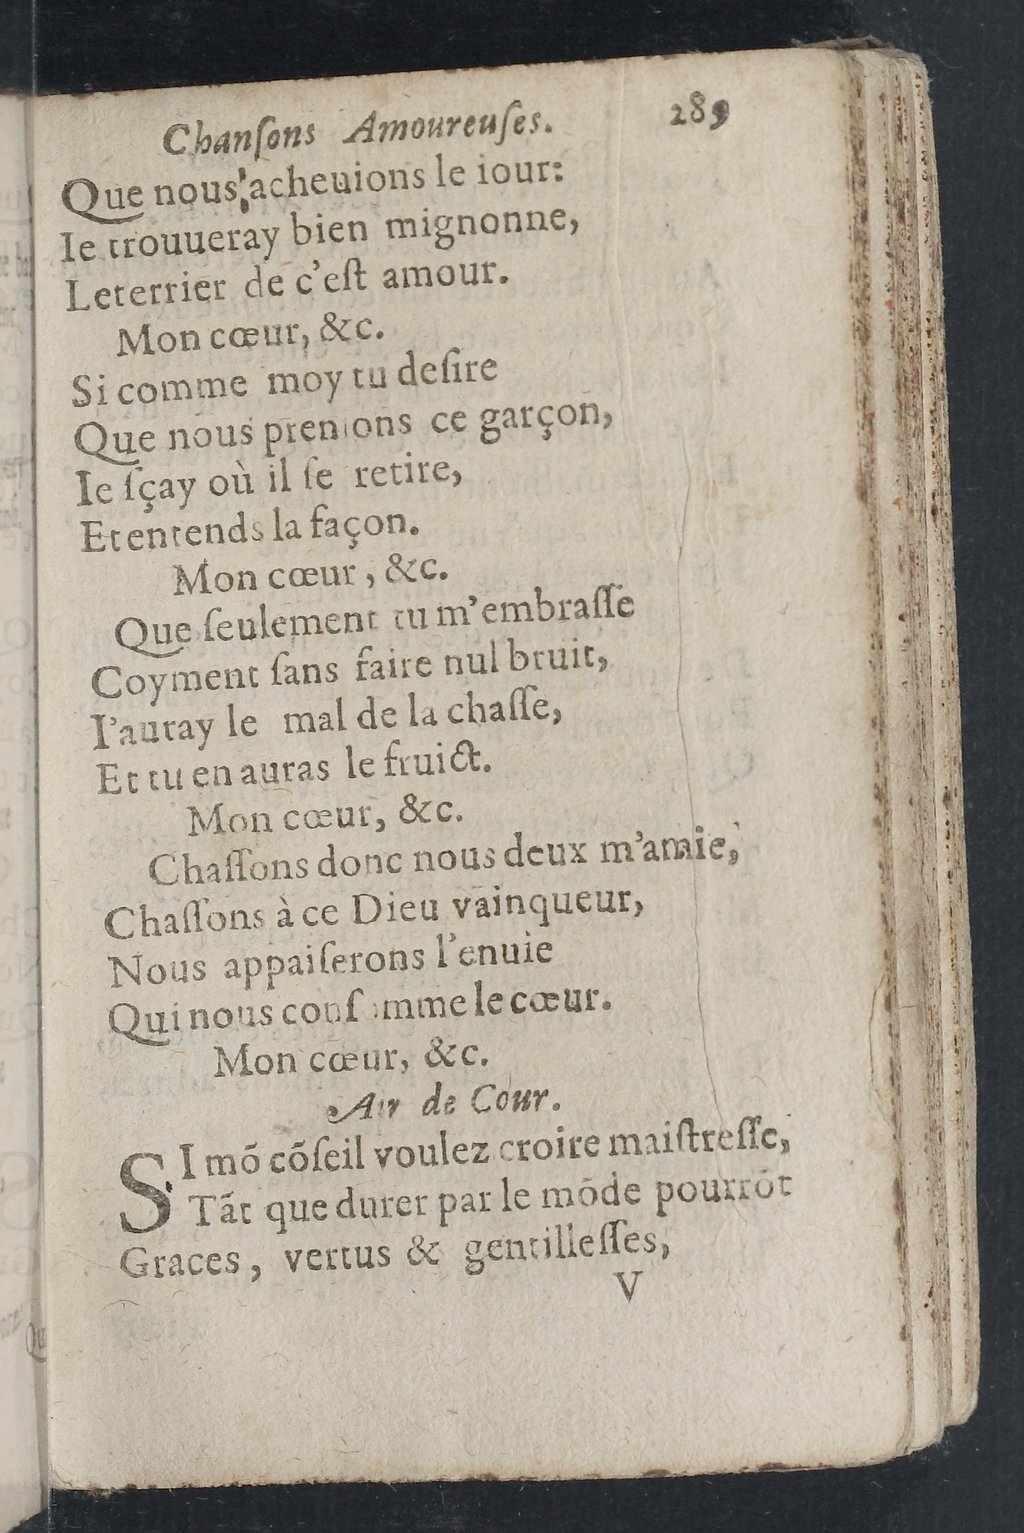 Chanſons Amoureuſes. 289
Que nous acheuions le iour:
Ie trouueray bien mignonne,
Leterrier de c'eſt amour.
Mon cœur, &c.
Si comme moy tu deſire
Que nous prenions ce garçon,
Ie ſçay où il ſe retire,
Et entends la façon.
Mon cœur, &c.
Que ſeulement tu m'embraſſe
Coyment ſans faire nul bruit,
I'auray le mal de la chaſſe,
Et tu en auras le fruict.
Mon cœur, &c.
Chaſſons donc nous deux m'amie,
Chaſſons à ce Dieu vainqueur,
Nous appaiſerons l'enuie
Qui nous conſomme le cœur.
Mon cœur, &c.
Air de Cour.
SI mõ cõſeil voulez croire maiſtreſſe,
Tãt que durer par le mõde pourrõt
Graces, vertus & gentilleſſes,
V